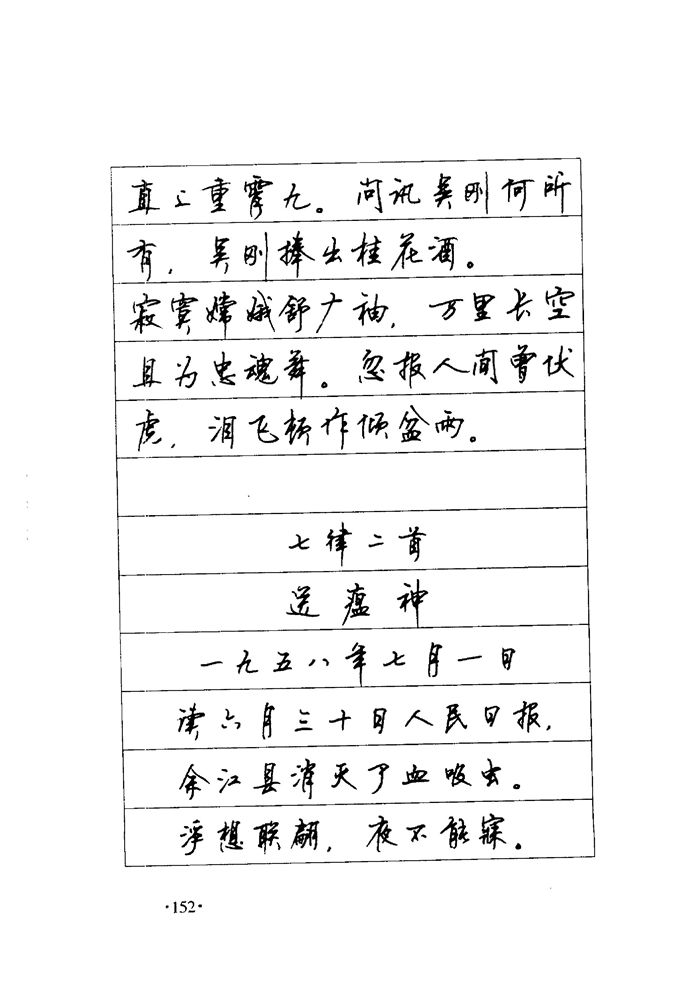 直上重霄九。问讯吴刚何所
有，吴刚捧出桂花酒。
寂寞嫦娥舒广袖，万里长空
且为忠魂舞。忽报人间曾伏
虎，泪飞顿作倾盆雨。
七律二首
送瘟神
一九五八年七月一日
读六月三十日人民日报，
余江县消灭了血吸虫。
浮想联翩，夜不能寐。
·152·